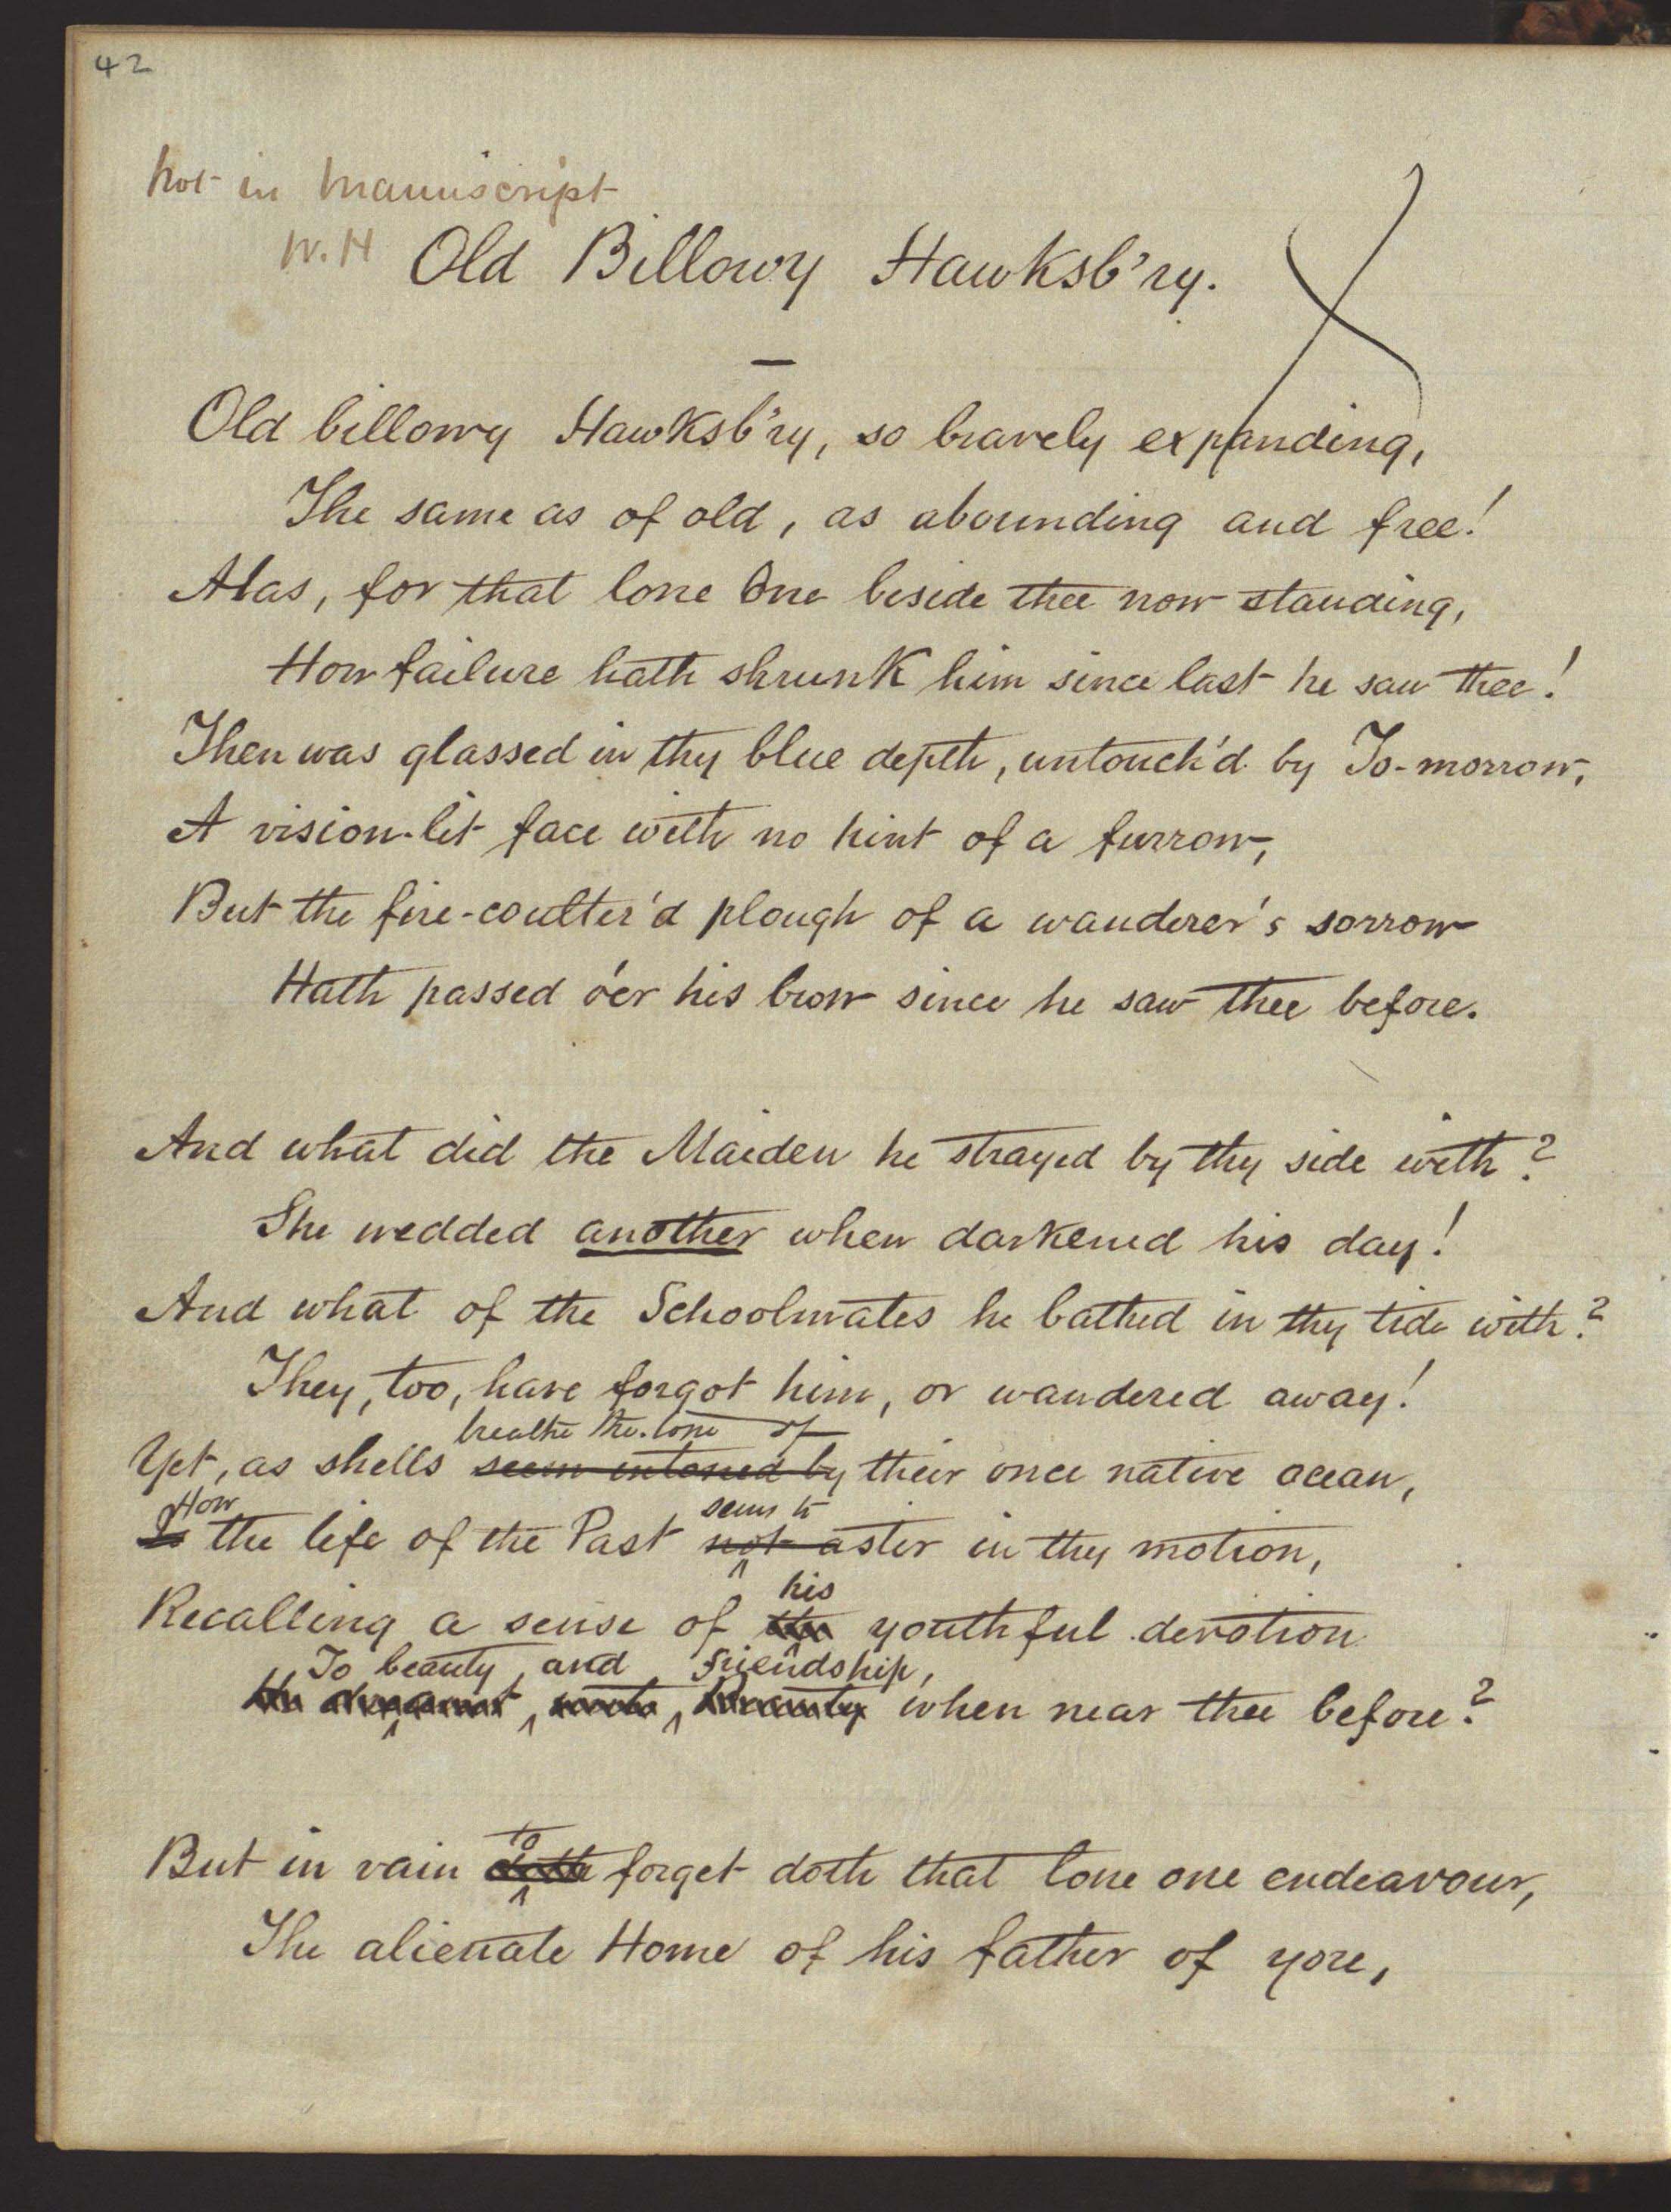 42
Not in Manuscript
W. H
Old Billowy Hawksb'ry.
Old billowy Hawksb'ry, so bravely expanding,
The same as of old, as abounding and free!
Alas, for that lone One beside thee now standing,
How failure hath shrunk him since last he saw thee!
Then was glassed in thy blue depth, untouch'd by To-morrow,
A vision-lit face with no hint of a furrow,
But the fire-coulter'd plough of a wanderer's sorrow
Hath passed o'er his brow since he saw thee before.
And what did the Maiden he strayed by thy side with?
She wedded another when darkened his day!
And what of the Schoolmates he bathed in thy tide with?
They, too, have forgot him, or wandered away!
breathe the tone of
Yet, as shells seem intoned by their once native ocean,
How seems to
Is the life of the Past not astir in thy motion,
his
Recalling a sense of the youthful devotion
To beauty, and friendship,
when near thee before?
to
But in vain doth forget doth that lone one endeavour,
The alienate Home of his father of yore,